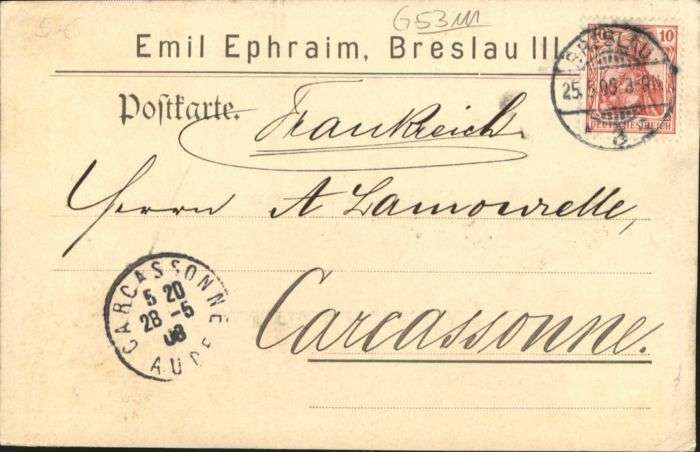 G53M
Emil Ephraim, Breslau III
Postkarte.
Frankreich
Herrn A Lamourelle,
Carcassonne.
BRESLAU
10
DEUTSCHES REICH
CARCASSONNE
5 20
28 -5
08
AUDE